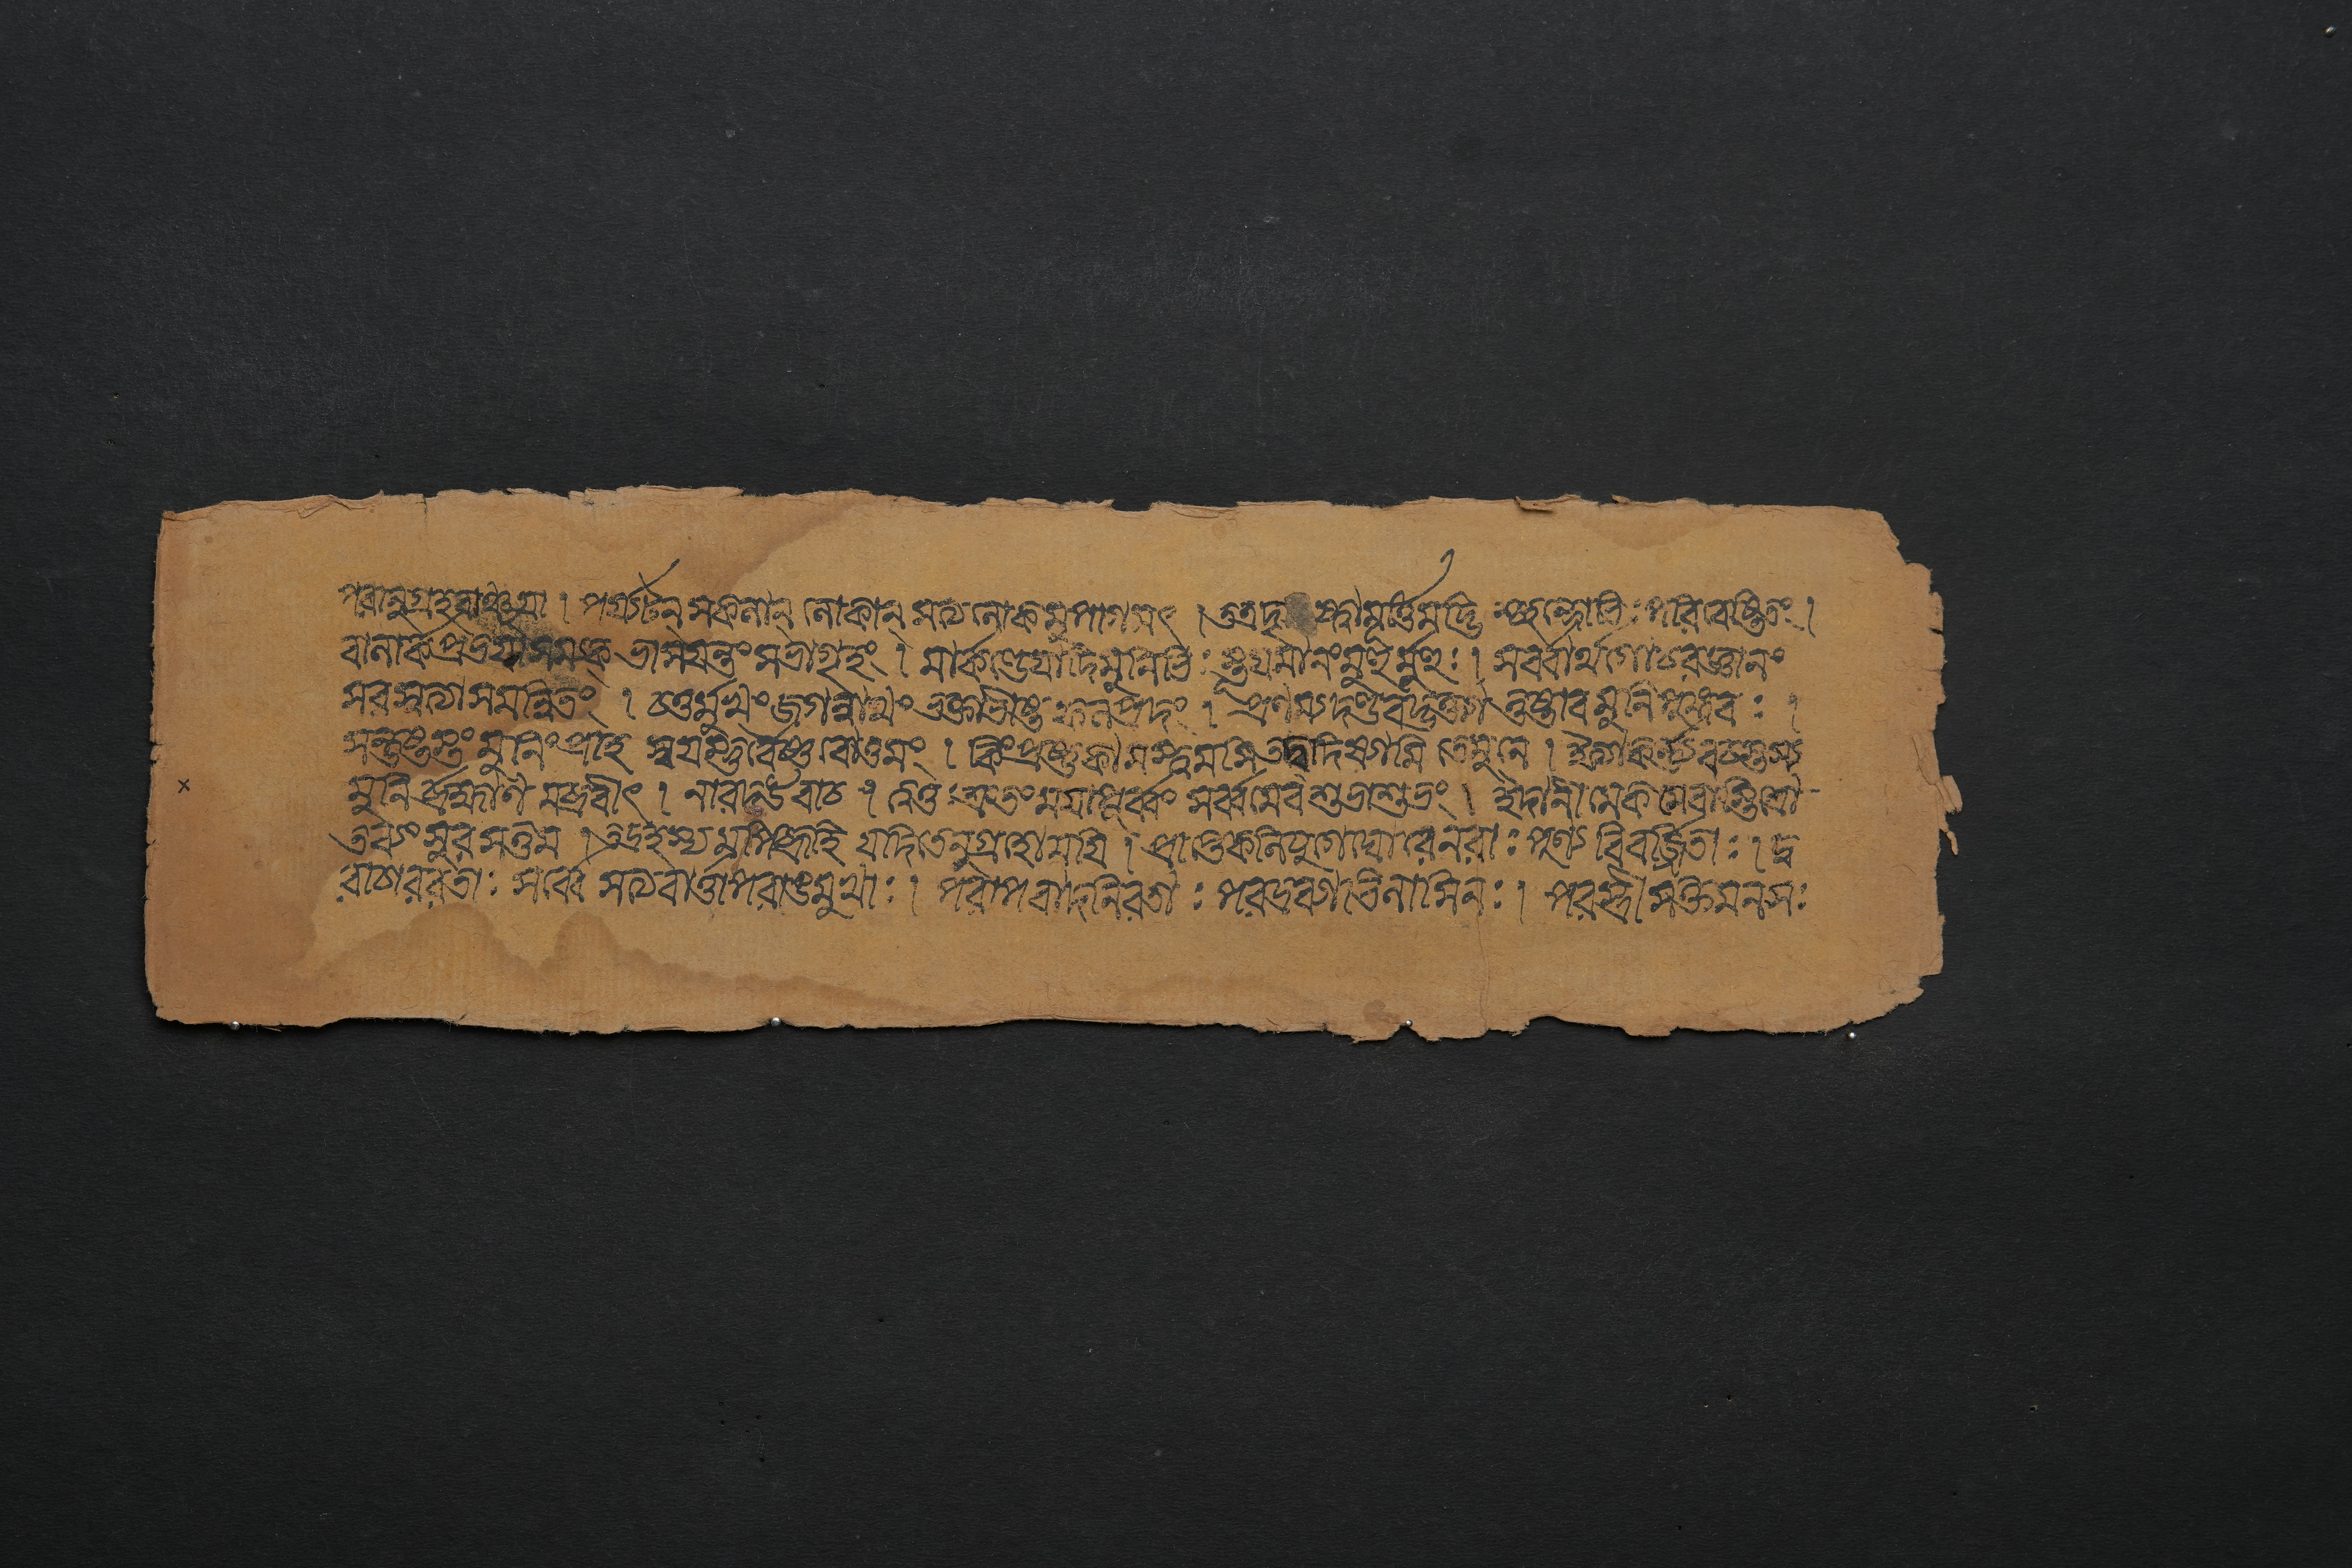 পরানুগ্রহবাঞ্ছয়া । পর্য্যটন্ সকলান্ লোকান্ সত্যলোকমুপাগমৎ । তত্রদৃষ্ট্বা মূর্ত্তিমদ্ভিশ্ছন্দোভিঃ পরিবেষ্টিতং ।
বালার্কপ্রভয়াসম্যক্ ভাসয়ন্তং সভাগৃহং । মার্কণ্ডেয়াদিমুনিভিঃ স্তূয়মানংমুহুর্মুহুঃ । সর্ব্বার্থগোচরজ্ঞানং
সরস্বত্যাসমন্বিতং । চতুর্ম্মুখং জগন্নাথং ভক্তাভীষ্ট ফলপ্রদং । প্রণম্যদণ্ডবদ্ভক্ত্যা তুষ্টাব মুনিপুঙ্গবঃ ।
সন্তুষ্টস্তং মুনিং প্রাহ স্বয়ম্ভূর্বৈষ্ণবোত্তমং । কিং প্রষ্টুকামস্ত্বমসি তদ্বদিষ্যামি তেমুনে । ইত্যাকর্ণ্যবচস্তস্য
মুনির্ব্রহ্মাণমব্রবীৎ । নারদউবাচ । ত্বত্তঃ শ্রুতং ময়াপূর্ব্বং সর্ব্বমেব শুভাশুভং । ইদানীমেকমেবাস্তিশ্রো
তব্যং সুরসত্তম । তদ্রহস্যমপিব্রূহি যদিতেনুগ্রহোময়ি । প্রাপ্তেকলিযুগেঘোরেনরাঃ পুণ্য বিবর্জ্জিতাঃ । দু
রাচাররতাঃ সর্ব্বে সত্যবার্ত্তাপরাঙমুখাঃ । পরাপবাদনিরতাঃ পরদ্রব্যাভিলাষিনঃ । পরস্ত্রীসক্তমনসঃ